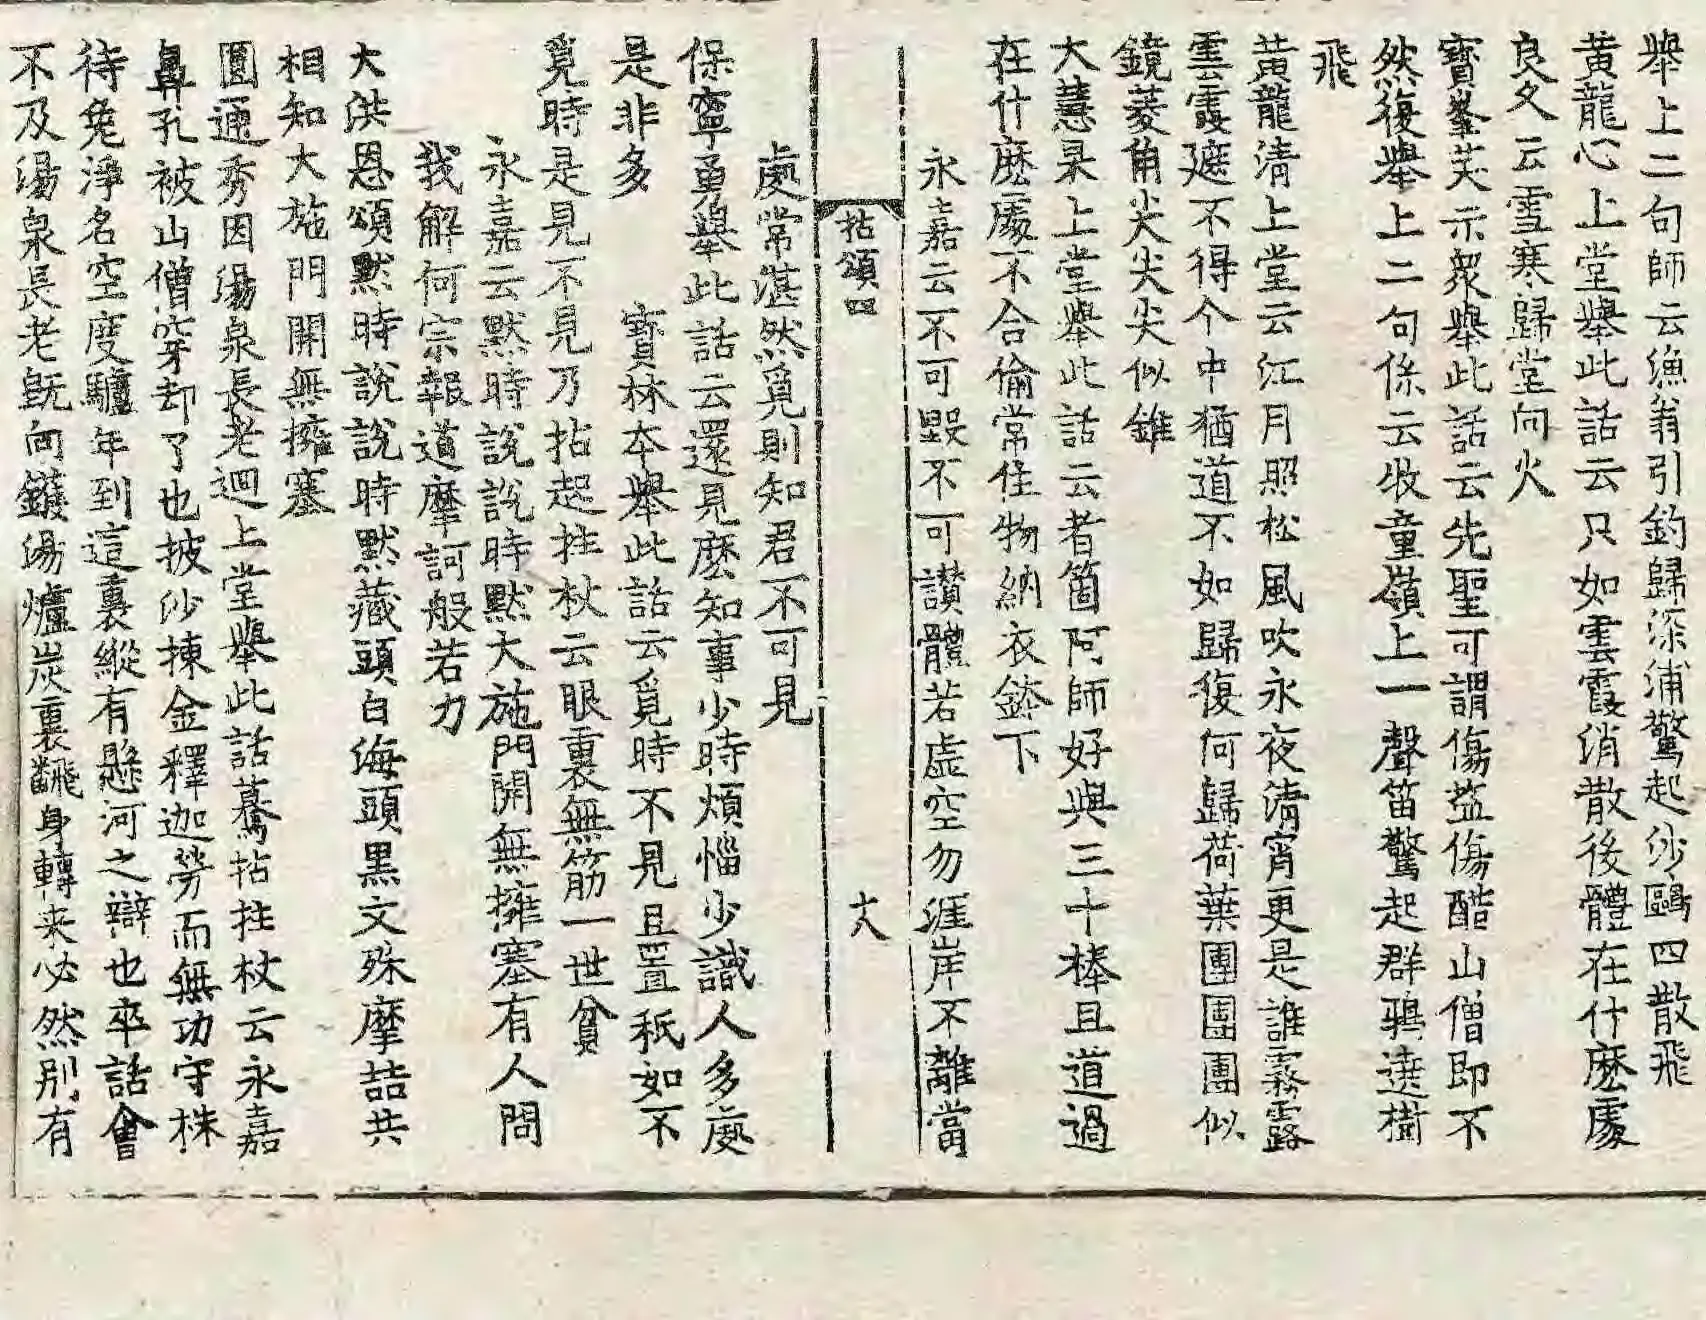 舉上二句師云漁翁引釣歸深浦驚起沙鷗四散飛
黃龍心上堂舉此話云只如雲霞消散後體在什麽處
良久云雪寒歸堂向火
寶峯英示衆舉此話云先聖可謂傷盐傷醋山僧即不
然復舉上二句係云牧童嶺上一聲笛驚起群鵶遶樹
飛
黃龍清上堂云江月照松風吹永夜清宵更是誰霧露
雲霞遮不得个中猶道不如歸復何歸荷葉團團團似
鏡菱角尖尖尖似錐
大慧杲上堂舉此話云者箇阿師好與三十棒且道過
在什麽處不合倫常住物納衣鉢下
永嘉云不可毀不可讚體若虛空勿涯岸不離當
拈頌四
十八
處常湛然覓則知君不可見
保寧勇舉此話云還見麽知事少時煩惱少識人多處
是非多
寳林本舉此話云覓時不見且置秖如不
覓時是見不見乃拈起拄杖云眼裏無筋一世貧
永嘉云默時說說時默大施門開無擁塞有人問
我解何宗報道摩訶般若力
大洪恩頌默時說說時默藏頭白海頭黑文殊摩詰共
相知大施門開無擁塞
圓通秀因湯泉長老迴上堂舉此話驀拈拄杖云永嘉
鼻孔被山僧穿却了也披沙揀金釋迦勞而無功守株
待兔淨名空度驢年到這裏縱有懸河之辯也卒話會
不及湯泉長老旣向鑊湯爐炭裏飜身轉来必然別有